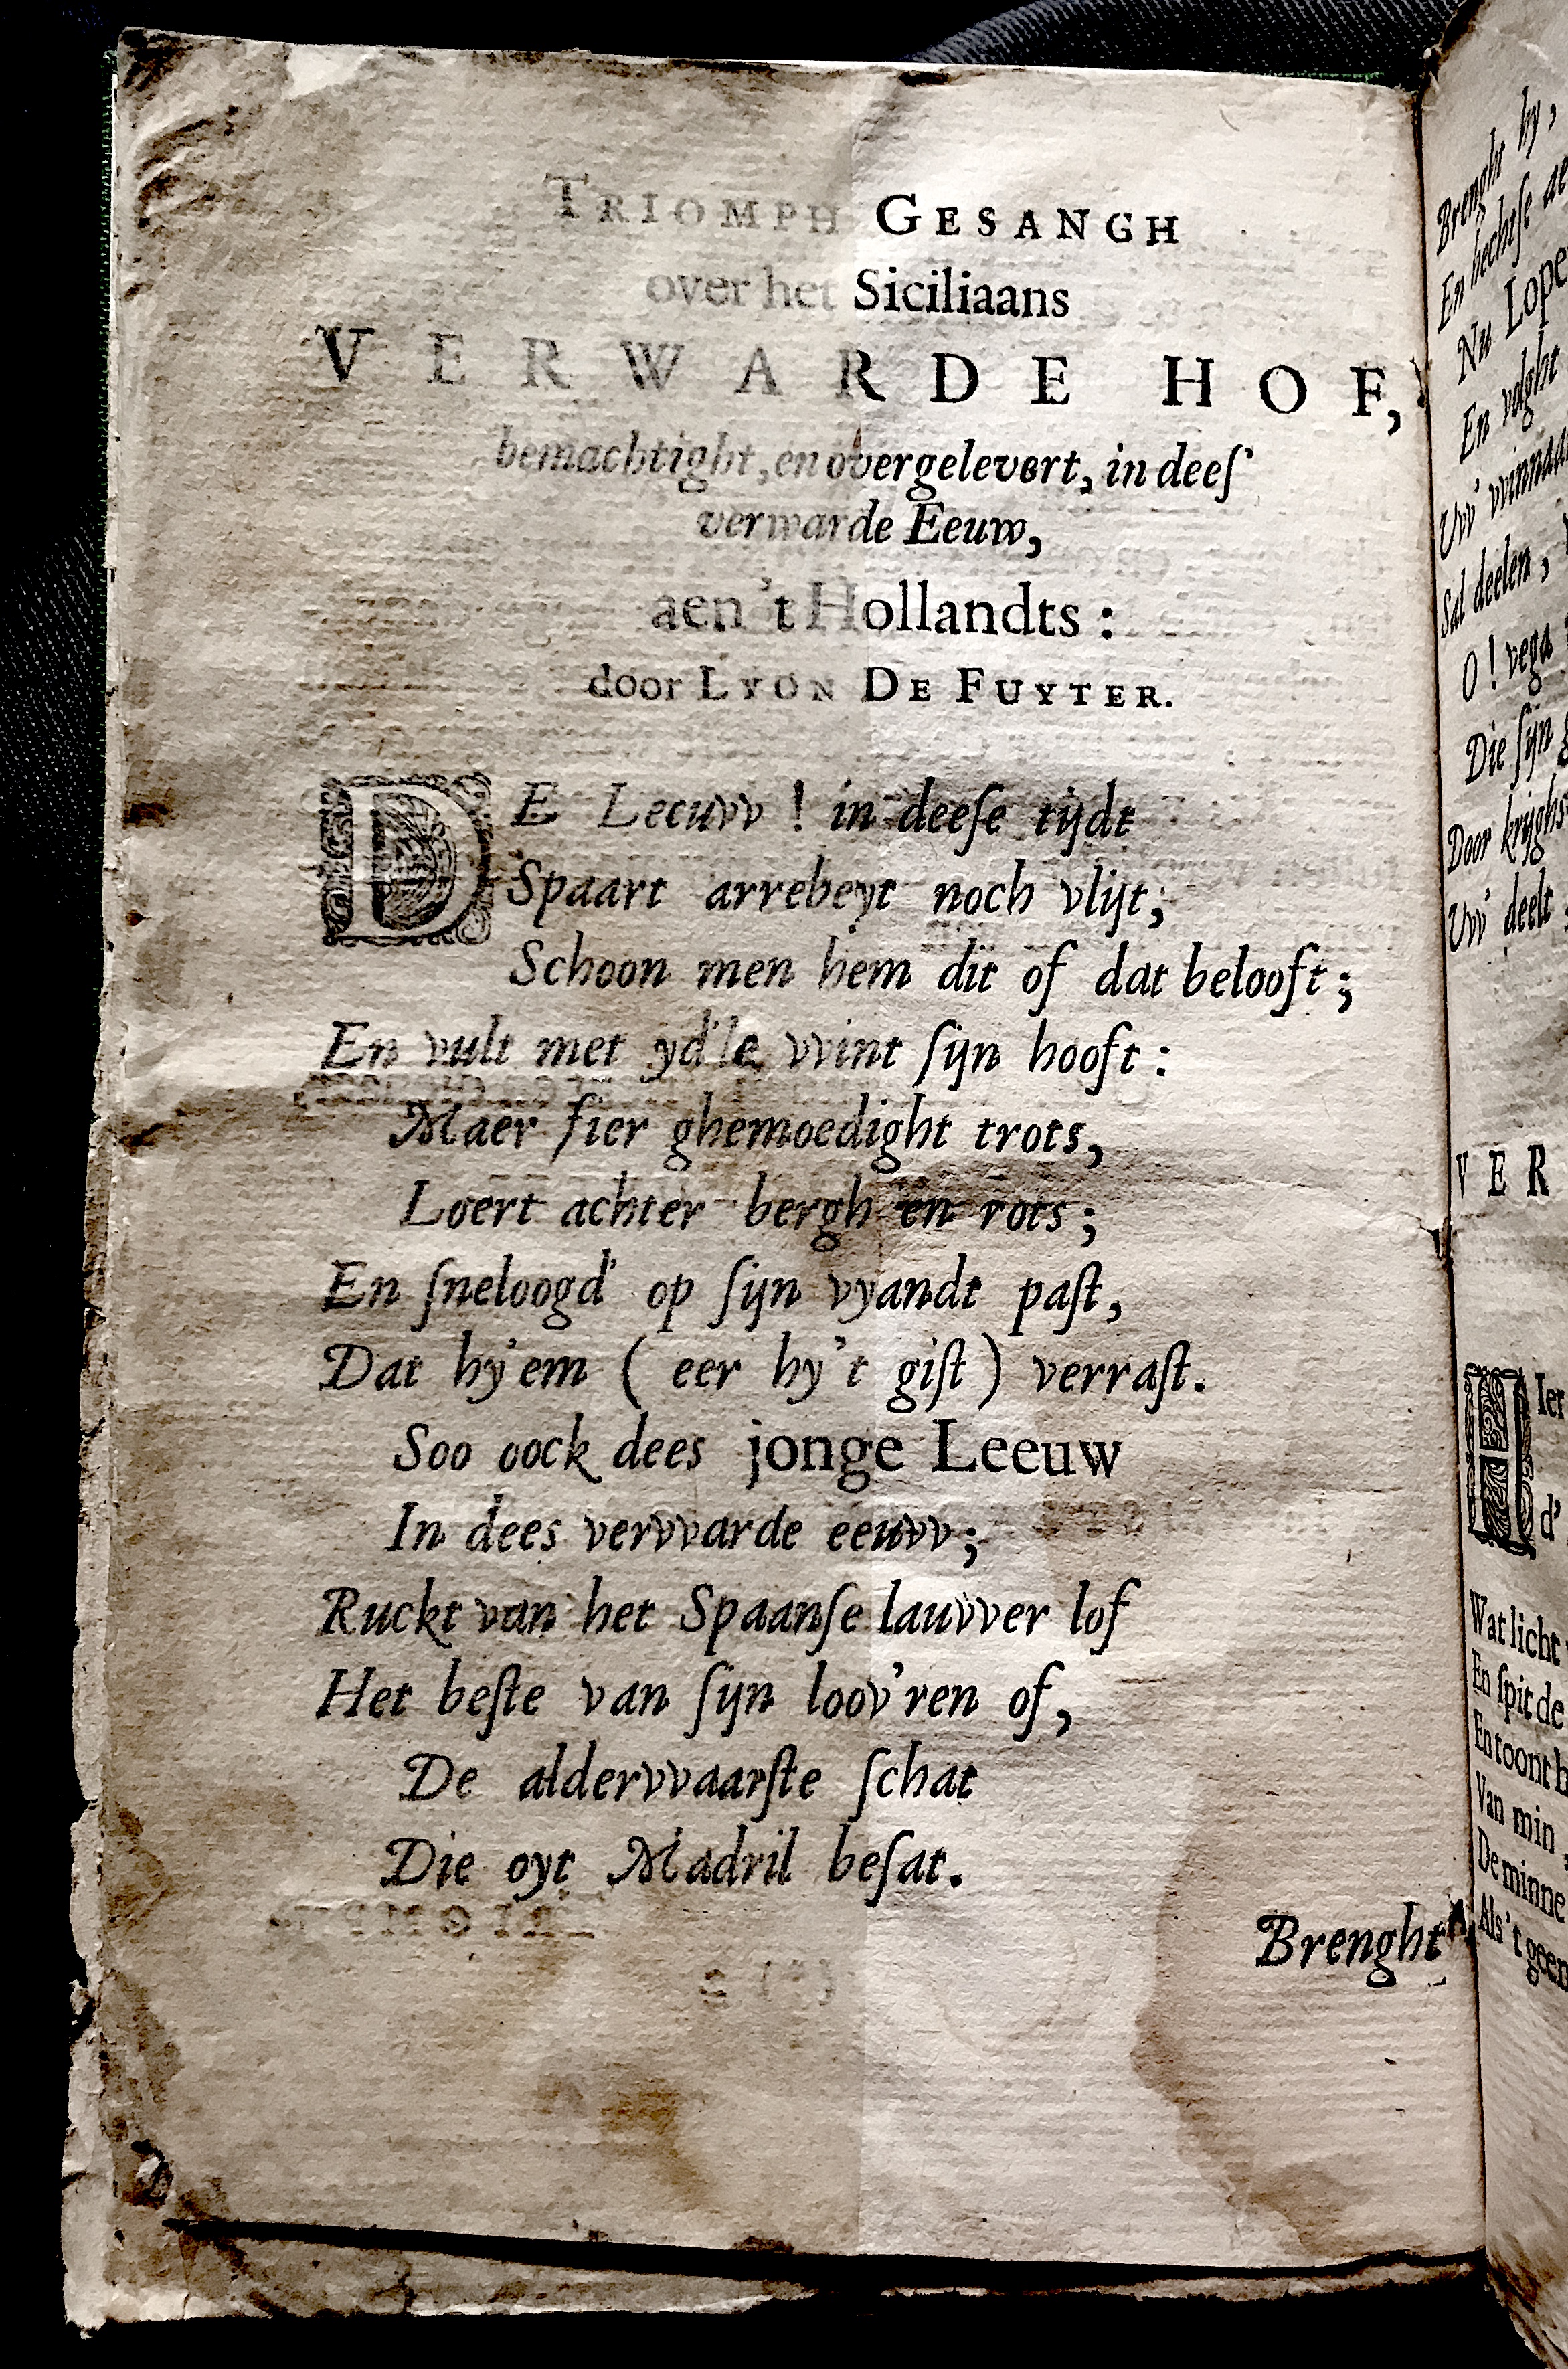 TRIOMPH GESANGH
over het Siciliaans
VERWARDE HOF,
bemachtight, en overgelevert, in deeſ'
verwarde Eeuw,
aen 't Hollandts :
door LYON DE FUYTER.
DE Leeuvv ! in deeſe tijdt
Spaart arrebeyt noch vlijt;
Schoon men hem dit of dat belooft;
En vult met yd'le vvint ſijn hooft:
Maer fier ghemoedight trots,
Loert achter bergh en rots;
En ſneloogd' op ſijn vyandt paſt,
Dat hy'em ( eer hy't giſt ) verraſt.
Soo oock dees jonge Leeuw
In dees vervvarde eeuvv;
Ruckt van het Spaanſe lauvver lof
Het beſte van ſijn loov'ren of,
De aldervvaarſte ſchat
Die oyt Madril beſat.
Brenght
Brenght hy,
En hechtſe
Nu Lope
En volght
Uvv'
Sal deelen,
O ! vega
Die ſijn
Door
Uvv' deelt
VER
HIer
d'
Wat licht
En ſpit de
En toont
Van min,
De minne
Als 't geen